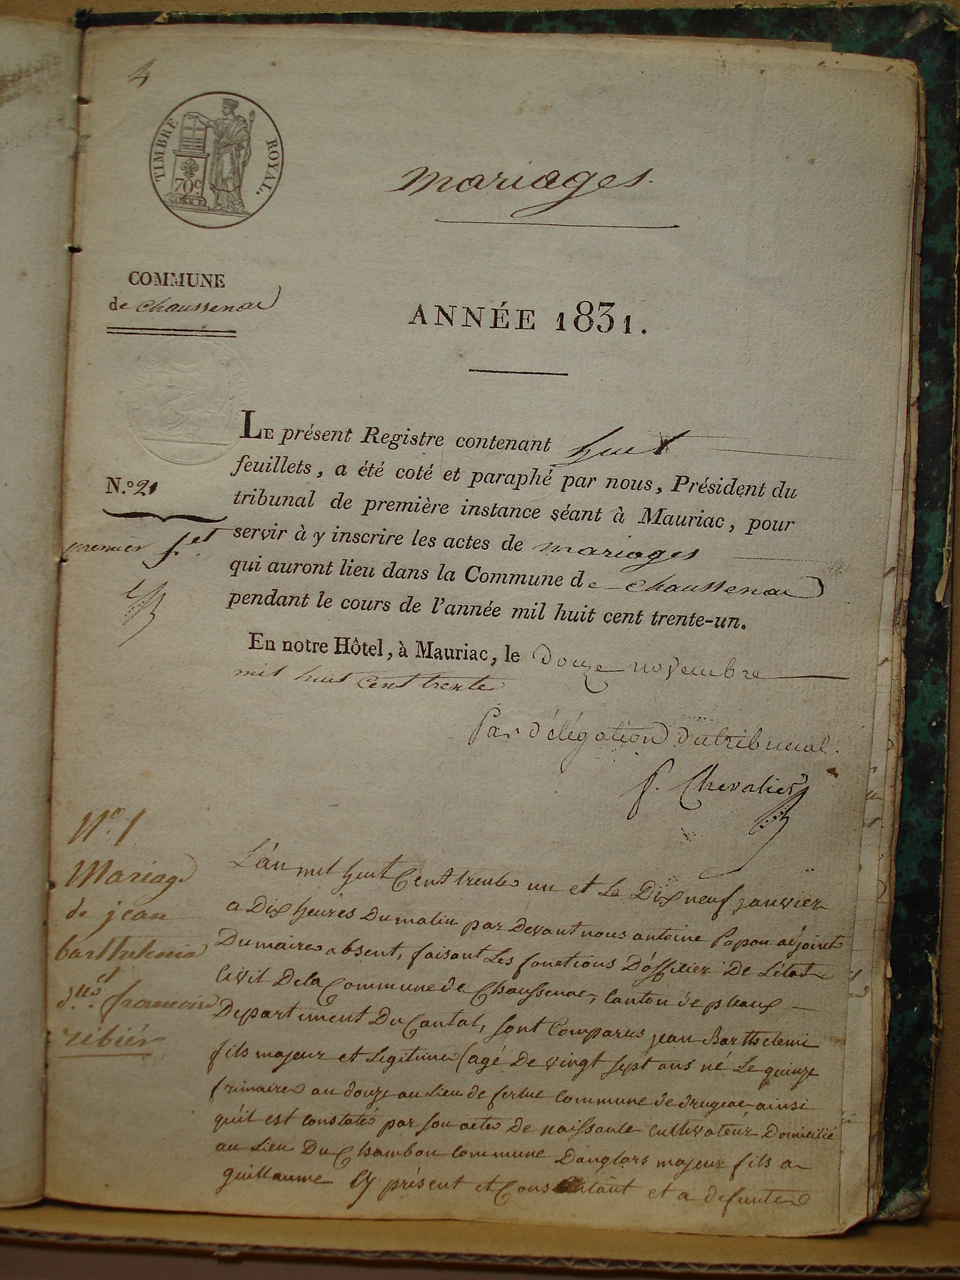 4
TIMBRE ROYAL.
70c
mariages.
COMMUNE
de chaussenac
ANNÉE 1831.
LE présent Registre contenant huit
feuillets, a été coté et paraphé par nous, Président du
tribunal de première instance séant à Mauriac, pour
servir à y inscrire les actes de mariages
qui auront lieu dans la Commune de chaussenac
pendant le cours de l'année mil huit cent trente-un.
N.° 21
premier f.et
En notre Hôtel, à Mauriac, le Douze novembre
mil huit cent trente
Par délégation du tribunal.
Chevalier
N°. 1
Mariage
de jean
barthelemi
et
d.lle francoise
rébiér
L'an mil huit Cent trente un et le Dix neuf janvier
a Dix heures Du matin par Devant nous antoine Papon adjoint
Du maire absent, faisant les fonctions D'officier De L'état
Civil De la Commune de Chaussenac, Canton de pleaux
Departement Du Cantal, sont Comparus jean Barthelemi
fils majeur et Legitime agé De vingt sept ans né Le quinze
frimaire an douze au Lieu de commune de drugeac ainsi
qu'il est constaté par son acte De naissance cultivateur Domicilié
au Lieu Du Chambon commune Danglars majeur fils a
guillaume Cy présent et Consentant et a defunte